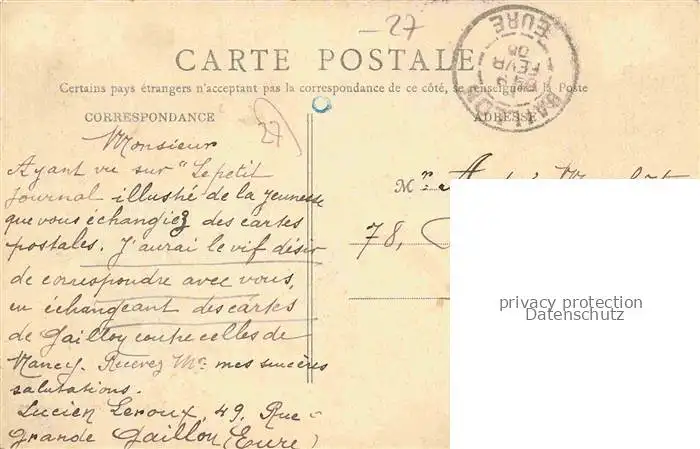 -27
CARTE POSTALE
Certains pays étrangers n'acceptant pas la correspondance de ce côté, se renseigner à la Poste
CORRESPONDANCE
27
Monsieur
Ayant vu sur "Le petit
Journal illustré de la jeunesse
que vous échangiez des cartes
postales. J'aurai le vif désir
de correspondre avec vous,
en échangeant des cartes
de Gaillon contre celles de
Nancy. Recevez Mr mes sincères
salutations.
Lucien Leroux, 49, Rue
Grande Gaillon (Eure)
EURE
FEVR
ADRESSE
Mr
78,
privacy protection
Datenschutz